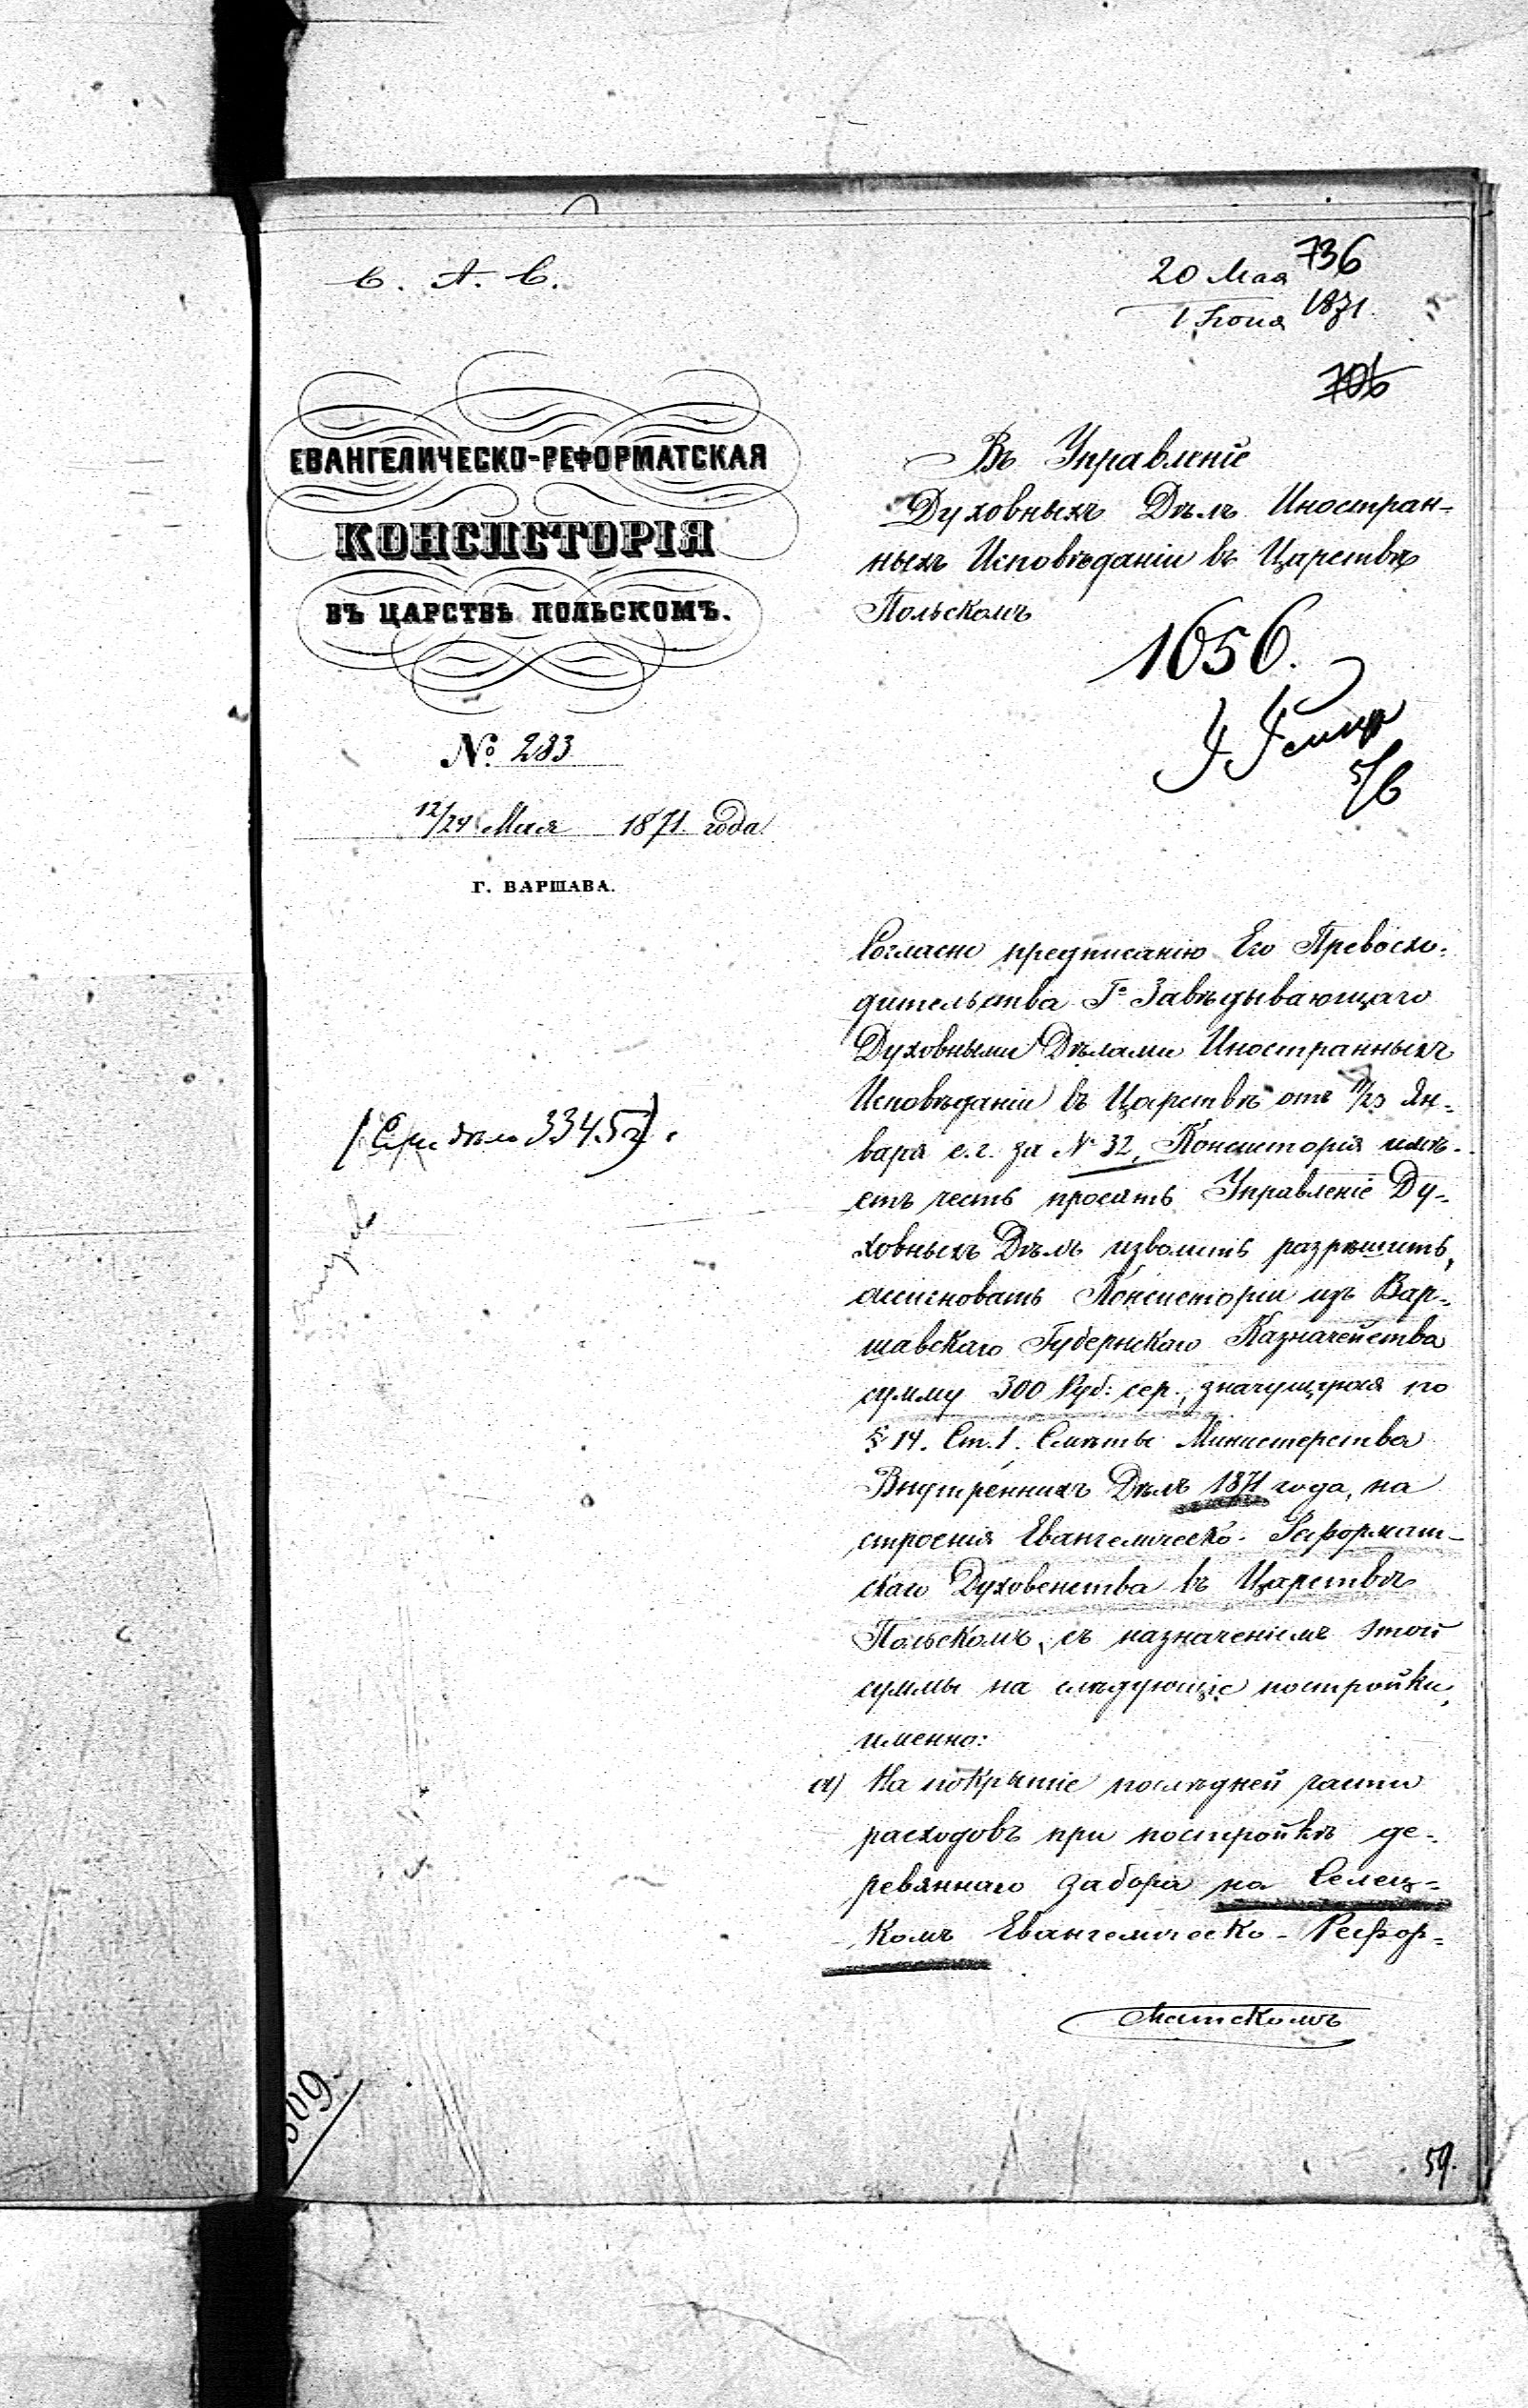 С. А. С.
736
20 Мая
1 Іюня 1871.
706
ЕВАНГЕЛИЧЕСКО-РЕФОРМАТСКАЯ
КОНСИСТОРІЯ
ВЪ ЦАРСТВѢ ПОЛЬСКОМЪ.
№ 283
12/24 Мая 1871. года
Г. ВАРШАВА.
Въ Управленіе
Духовныхъ Дѣлъ Иностран-
ныхъ Исповѣданіи въ Царствѣ
Польскомъ
1656.
5/6
Согласно предписанію Его Превосхо-
дительства Гᵒ Завѣдывающаго
Духовными Дѣлами Иностранныхъ
Исповѣданіи въ Царствѣ отъ 11/23 Ян-
варя с.г. за № 32, Консисторія имѣ-
етъ честь просить Управленіе Ду-
ховныхъ Дѣлъ изволить разрѣшить,
ассигновать Консисторіи изъ Вар-
шавскаго Губернскаго Казначейства
сумму 300 Руб: сер., значущуюся по
§ 14. Ст. 1. Смѣты Министерства
Внутреннихъ Дѣлъ 1871 года, на
строенія Евангелическо-Реформат-
скаго Духовенства въ Царствѣ
Польскомъ, съ назначеніемъ этой
суммы на слѣдующіе постройки,
именно:
а) На покрытіе послѣдней части
расходовъ при постройкѣ де-
ревяннаго забора на Селец-
комъ Евангелическо-Рефор-
матскомъ
дѣло 3345
309
59.